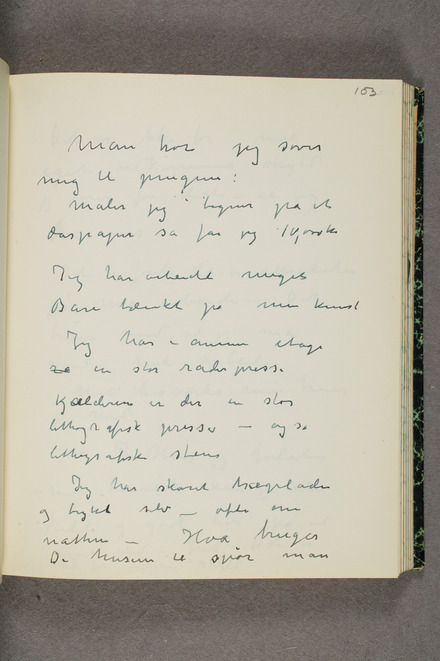 103
Man tror jeg sover
mig til pengene:
Maler jeg tegner på et
daspapir så får jeg 10,000 kr
Jeg har arbeidet meget
Bare tænkt på min kunst
Jeg har i annen etage
en stor raderpresse
Kjælderen er der en stor
lithografisk presse – og så
lithografiske stene
Jeg har skåret træplader
og trykt selv – ofte om
natten – Hva bruger
De husene til spør man